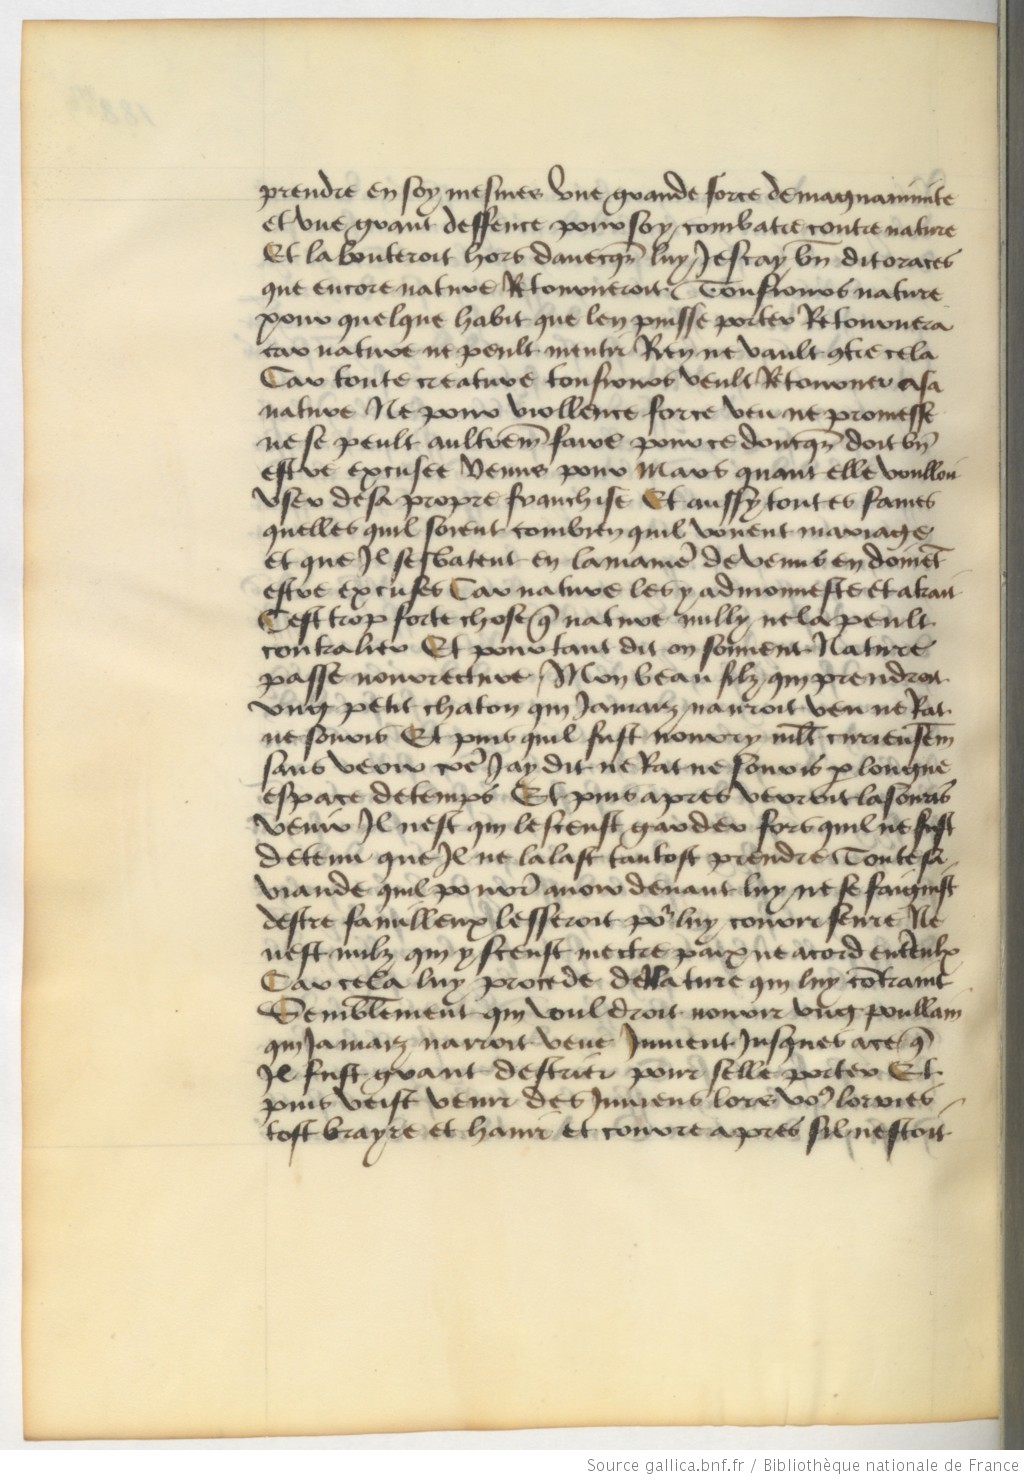 prendre en soy mesmes Une grande force de magnanimite
et Une grant deffence pour soy combatre contre nature
Et la bouteroit hors dauecq̄s luy Je scay bn̄ dit oraces
que encore nature Retourneroit Tousiours nature
pour quelque habit que len puisse porter Retournera
car nature ne peult mentir Ren ne vault 9tre cela
Car toute creature tousiours veult Retourner asa
nature Ne pour viollence force veu ne promesse
ne se peult aultrem̄ faire pour ce doncq̄s doit bn̄
estre excusee Venus pour Mars quant elle voulloit
vser de sa propre franchise Et aussy toutes fames
quelles quil soient combien quil vouent mariage
et que Il sesbatent en la maniere de venus en doiuēt
estre excuses Car nature les y admonneste et atrait
Cest trop forte chose q̄ nature nully ne la peult
contralier Et pour tant dit on souuent Nature
passe nourreture Mon beau filz qui prendroit
vng petit chaton qui Jamaiz nauroit veu ne Rat
ne souris Et puis quil fust nourry mlt̄ curieusem̄
sans veoir cōe Jay dit ne Rat ne souris p longue
espace de temps Et puis apres verroit la souris
venir Il nest qui le sceust garder fors quil ne fust
detenu que Il ne lalast tantost prendre Toute sa
viande quil pourr̄ auoir deuant luy ne se faignist
destre familleux lesseroit po͛ luy courir seure Ne
nest nulz qui y sceust mectre paix ne acord entr̄eulx
Car cela luy procede de Nature qui luy cōtraint
Semblement qui vouldroit nourir vng poullain
qui Jamaiz narroit veue Jument Jusques ace q̄
Il fust grant destrier pour selle porter Et
puis veist venir des Jumens lors vo͛ lorries
tost brayre et hanir et courre apres sil nestoit